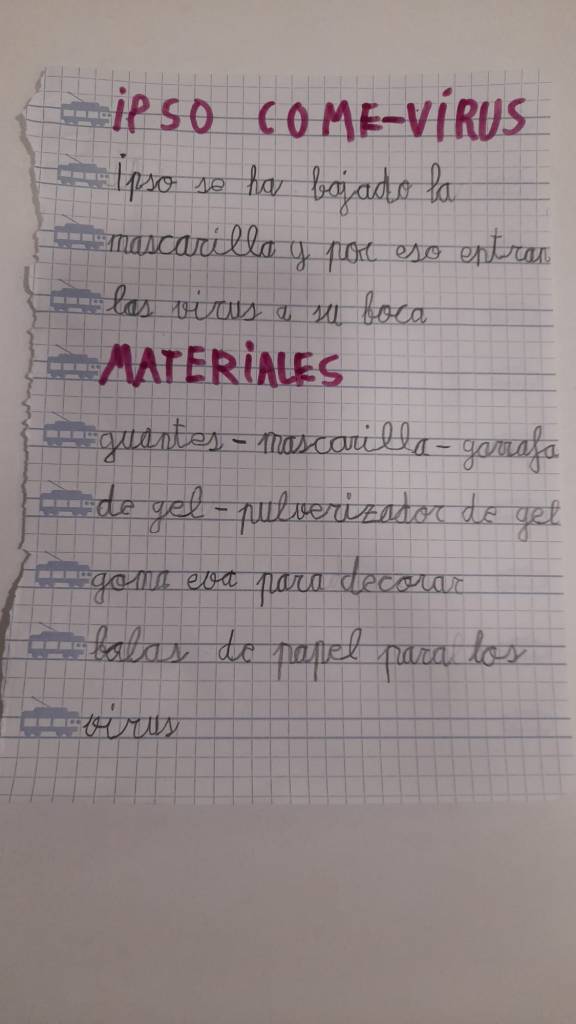 IPSO COME-VÍRUS
ipso se ha bajado la
mascarilla y por eso entran
las virus a su boca
MATERIALES
guantes - mascarilla - garrafa
de gel - pulverizador de gel
goma eva para decorar
bolas de papel para los
virus